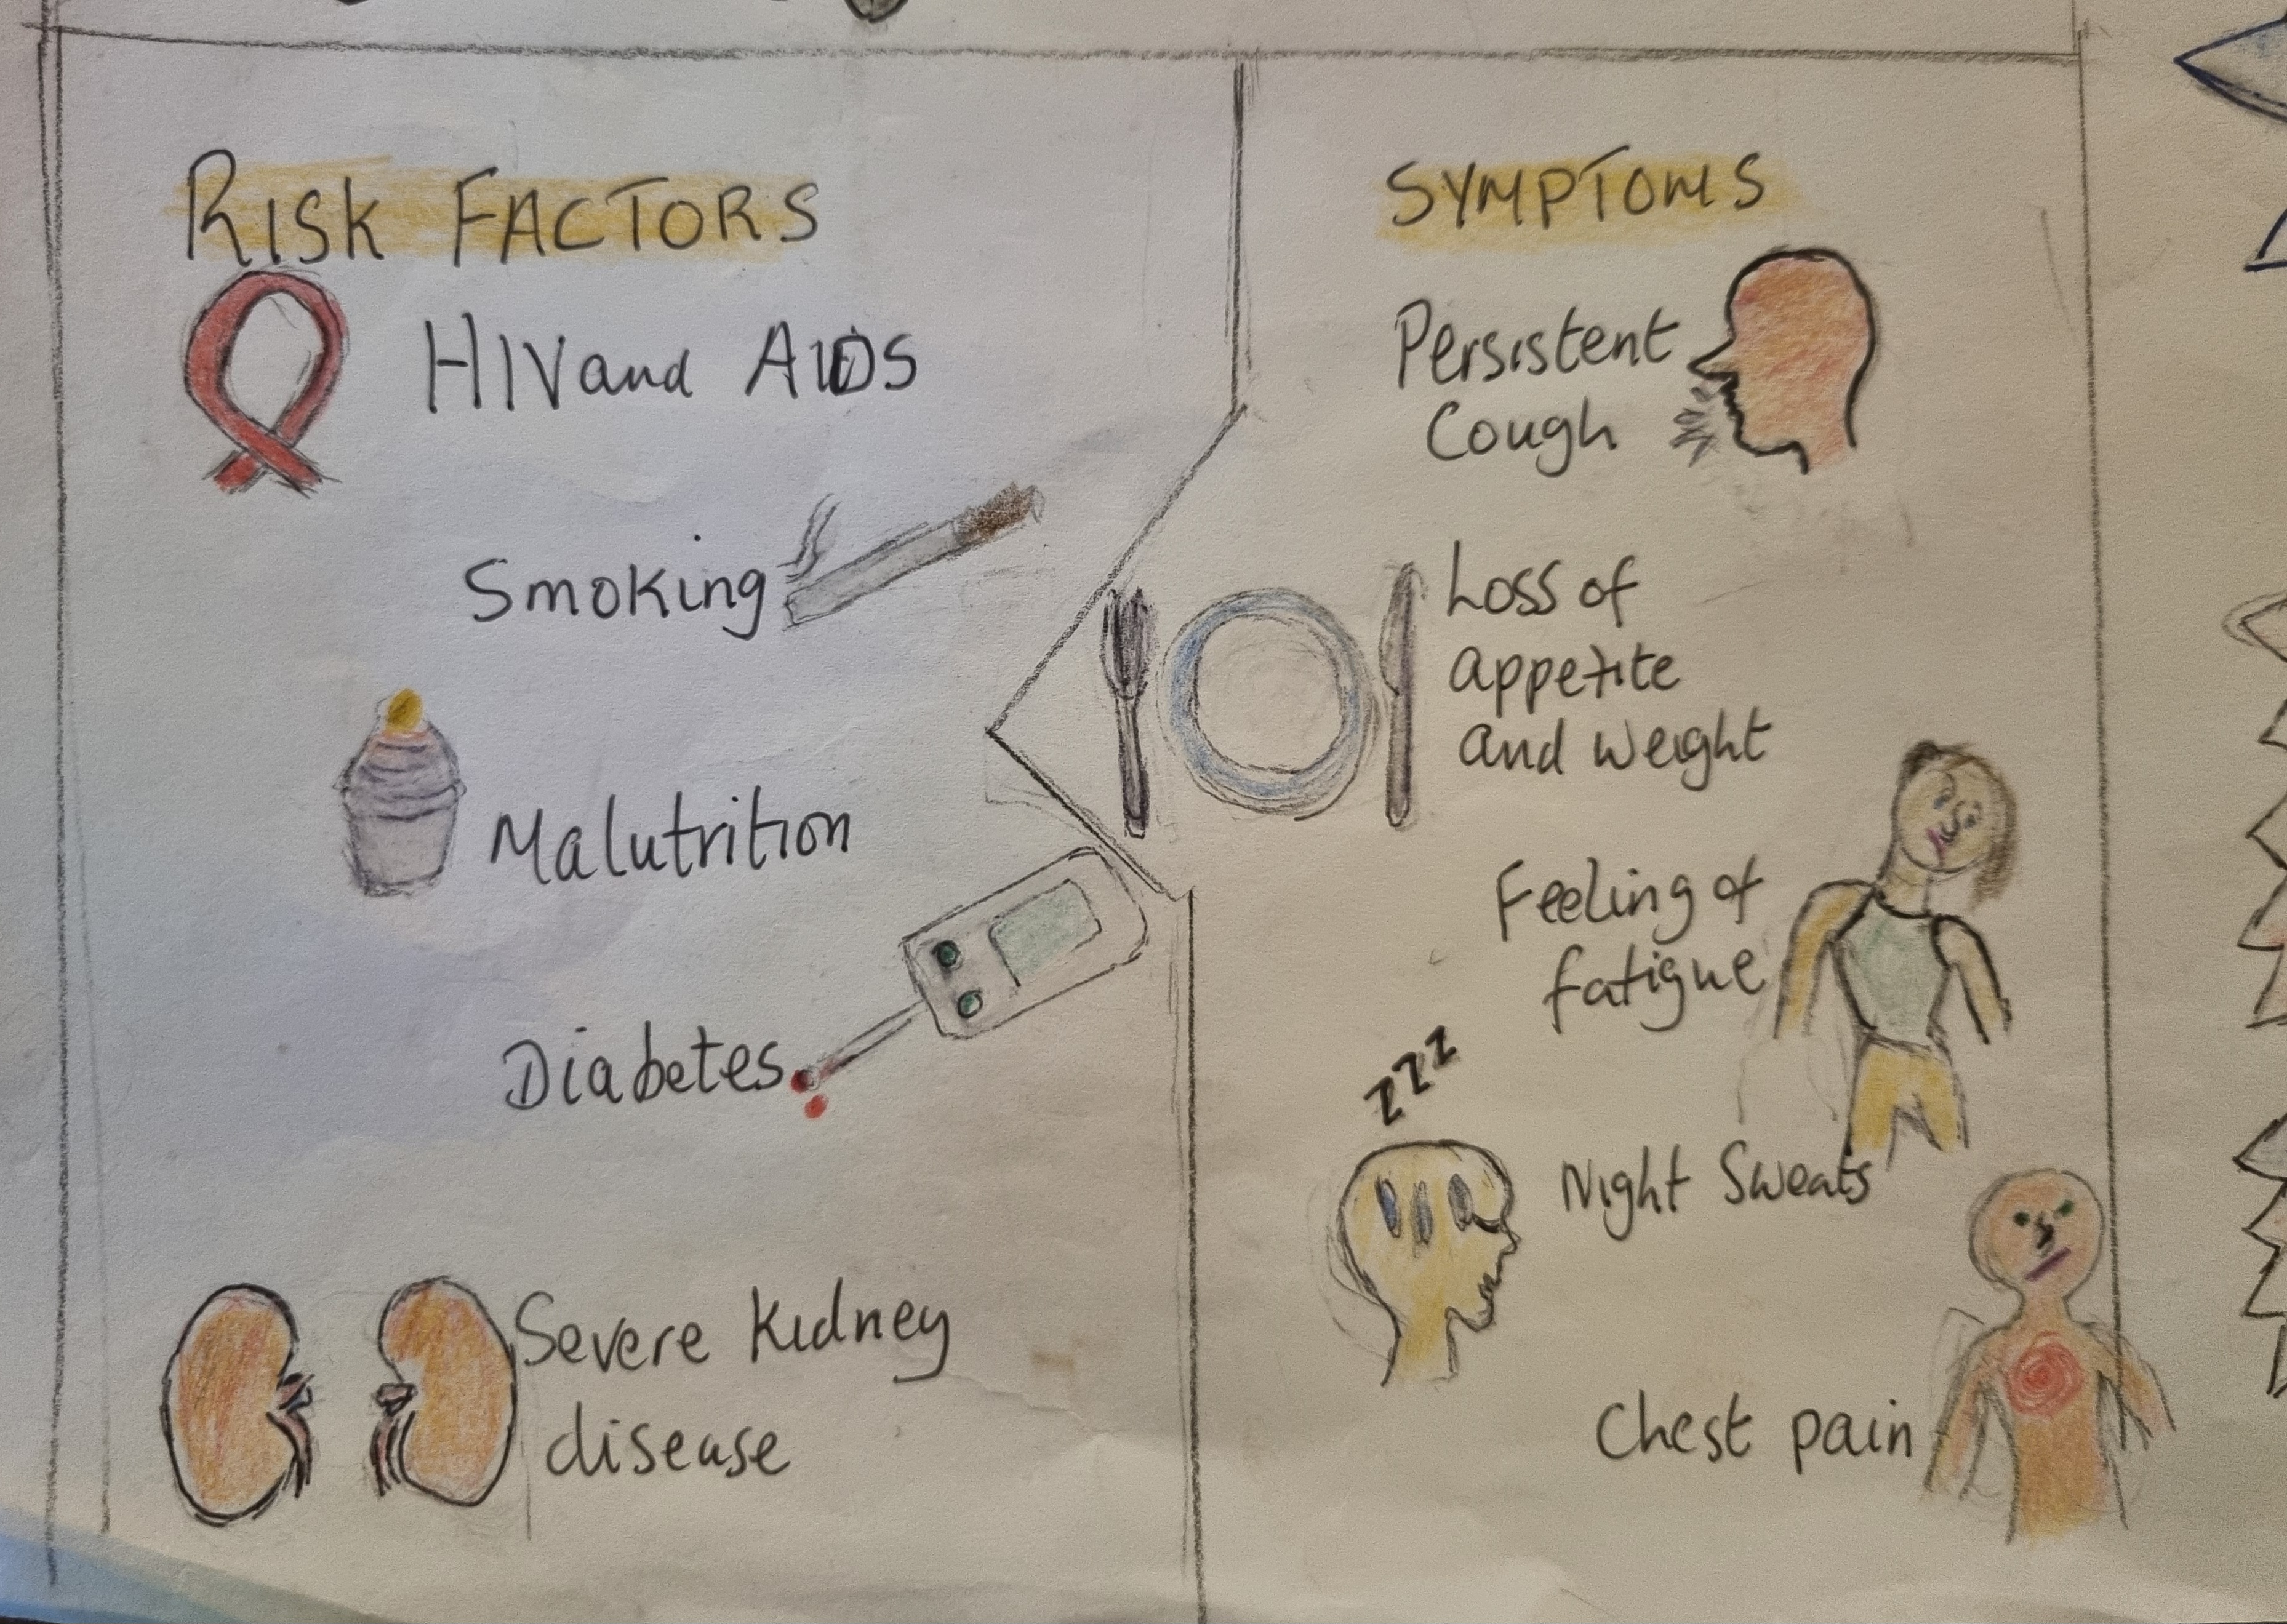 RISK FACTORS
HIV and AIDS
Smoking
Malutrition
Diabetes
Severe Kidney
disease
SYMPTOMS
Persistent
Cough
Loss of
appetite
and weight
Feeling of
fatigue
zzz
Night Sweats
Chest pain